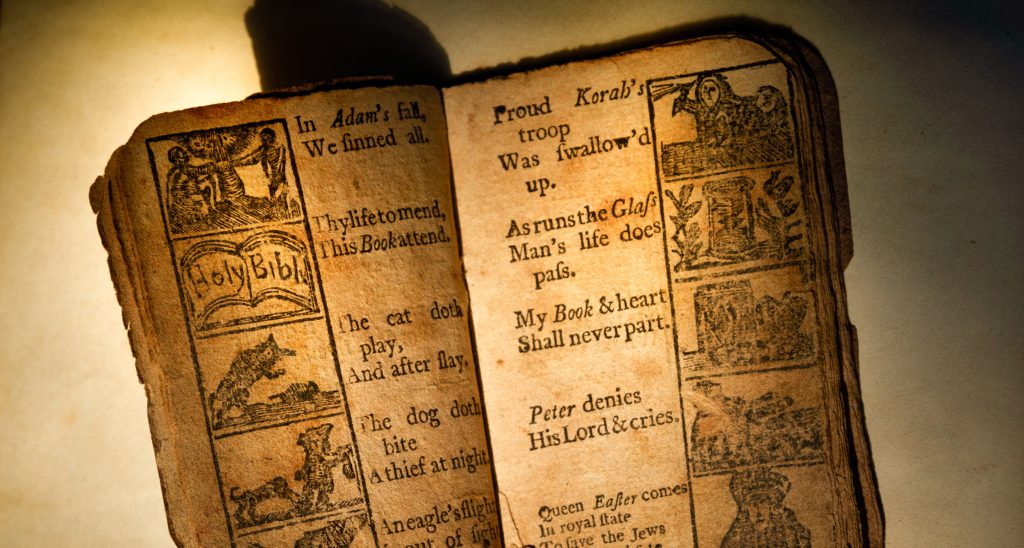 In Adam's fall,
We ſinned all.
Thy life to mend,
This Book attend.
Holy Bible
The cat doth
play,
And after ſlay.
The dog doth
bite
A thief at night.
An eagle's flight
out of
Proud Korah's
troop
Was ſwallow'd
up.
As runs the Glaſs
Man's life does
paſs.
My Book & heart
Shall never part.
Peter denies
His Lord & cries.
Queen Eſter comes
In royal ſtate
To ſave the Jews